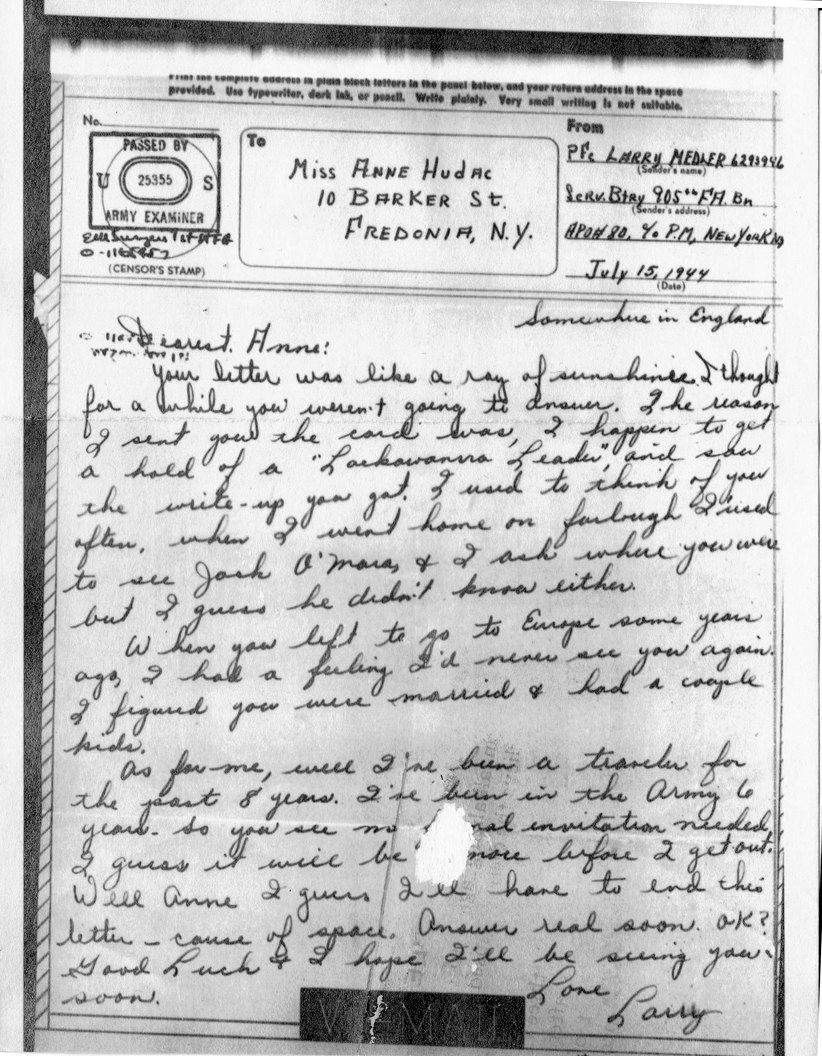 Print the complete address in plain block letters in the panel below, and your return address in the space
provided. Use typewriter, dark ink, or pencil. Write plainly. Very small writing is not suitable.
No.
PASSED BY
U 25355 S
ARMY EXAMINER
(CENSOR'S STAMP)
To
Miss ANNE HUDAC
10 BARKER St.
FREDONIA, N.Y.
From
PFc LARRY MEDLER 6293946
(Sender's name)
Serv. Btry 905th FA. Bn
(Sender's address)
APO# 80, c/o P.M, NEW YORK
July 15, 1944
(Date)
Somewhere in England
Dearest Anne:
Your letter was like a ray of sunshine. I thought
for a while you weren't going to answer. The reason
I sent you the card was, I happen to get
a hold of a "Lackawanna Leader", and saw
the write-up you got. I used to think of you
often, when I went home on furlough I used
to see Jack O'Mara, & I ask where you were
but I guess he didn't know either.
When you left to go to Europe some years
ago, I had a feeling I'd never see you again.
I figured you were married & had a couple
kids.
As for me, well I've been a traveler for
the past 8 years. I've been in the Army 6
years. So you see no invitation needed,
I guess it will be more before I get out.
Well Anne I guess I'll have to end this
letter - cause of space. Answer real soon. OK?
Good Luck & I hope I'll be seeing you
soon.
Love
Larry
V - MAIL